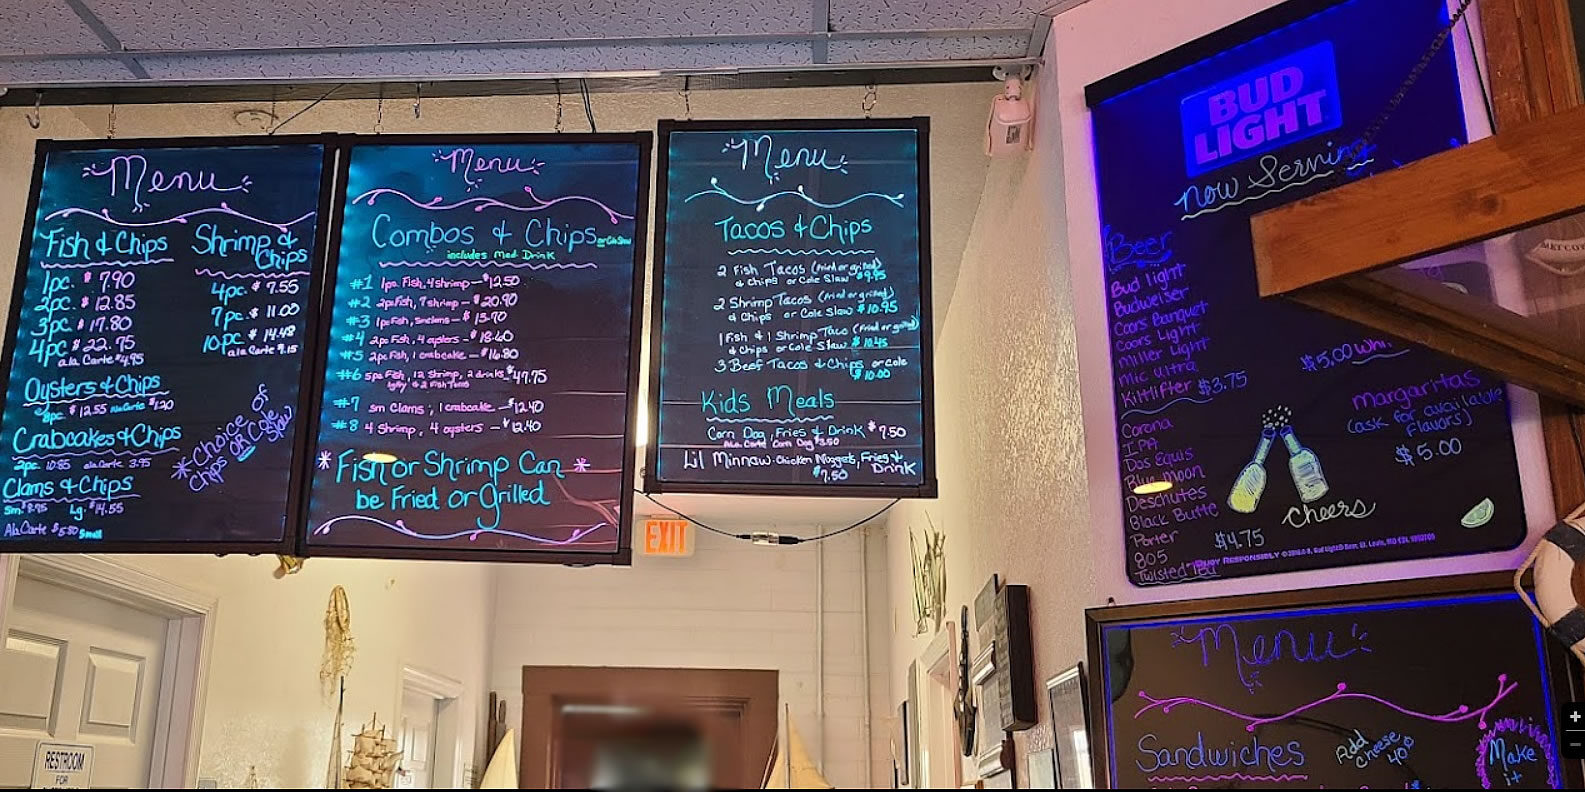 Menu
Fish & Chips
1pc. $7.90
2pc. $12.85
3pc. $17.80
4pc $22.75
ala Carte $4.95
Shrimp &
Chips
4pc. $7.55
7pc. $11.00
10pc. $14.48
ala Carte
Oysters & Chips
8pc. $12.55 Ala Carte $1.20
Crabcakes & Chips
2pc. 10.85 ala Carte 3.95
Clams & Chips
Sm. $8.95 Lg. $14.55
Ala Carte $5.50 Small
*Choice of
Chips OR Cole
Slaw
Menu
Combos & Chips or Cole Slaw
includes Med Drink
#1 1pc Fish, 4 shrimp — $12.50
#2 2pc Fish, 7 shrimp — $20.90
#3 1pc Fish, sm clams — $15.70
#4 2pc Fish, 4 oysters — $18.60
#5 2pc Fish, 1 crabcake — $16.80
#6 5pc Fish, 12 Shrimp, 2 drinks $47.75
#7 sm Clams, 1 crabcake — $12.40
#8 4 Shrimp, 4 oysters — $12.40
* Fish or Shrimp Can *
be Fried or Grilled
Menu
Tacos & Chips
2 Fish Tacos (fried or grilled)
& Chips or Cole Slaw $9.95
2 Shrimp Tacos (fried or grilled)
& Chips or Cole Slaw $10.95
1 Fish & 1 Shrimp Taco (fried or grilled)
& Chips or Cole Slaw $10.45
3 Beef Tacos & Chips or Cole
$10.00
Kids Meals
Corn Dog, Fries & Drink $7.50
Ala Carte Corn Dog $3.50
Lil Minnow - Chicken Nuggets, Fries &
Drink
$7.50
EXIT
RESTROOM
FOR
BUD
LIGHT
Now Serving
Beer
Bud light
Budweiser
Coors Banquet
Coors Light
Miller Light
Mic Ultra
Kiltlifter $3.75
Corona
IPA
Dos Equis
Blue Moon
Deschutes
Black Butte
Porter
805 $4.75
Twisted Tea
$5.00
Margaritas
(ask for available
flavors)
$5.00
Cheers
ENJOY RESPONSIBLY
Menu
Sandwiches
Add
Cheese
40¢
Make
it